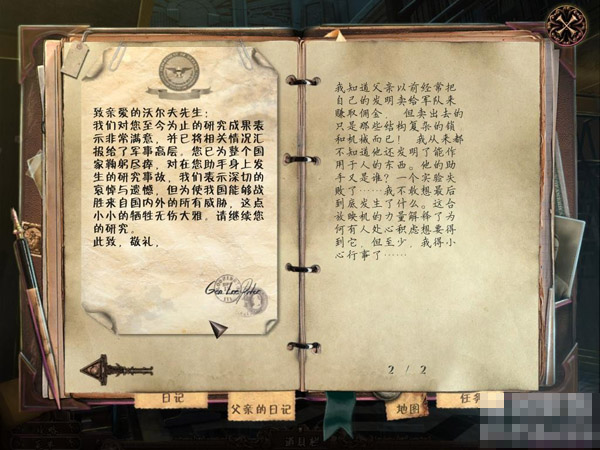 致亲爱的沃尔夫先生：
我们对您至今为止的研究成果表
示非常满意，并已将相关情况汇
报给了军事高层。您已为整个国
家鞠躬尽瘁，对在您助手身上发
生的研究事故，我们表示深切的
哀悼与遗憾，但为使我国能够战
胜来自国内外的所有威胁，这点
小小的牺牲无伤大雅。请继续您
的研究。
此致，敬礼，
我知道父亲以前经常把
自己的发明卖给军队来
赚取佣金， 但卖出去的
只是那些结构复杂的锁
和机械而已！ 我从来都
不知道他还发明了能作
用于人的东西。他的助
手又是谁？一个实验失
败了……我不敢想最后
到底发生了什么。这台
放映机的力量解释了为
何有人处心积虑想要得
到它，但至少，我得小
心行事了……
2 / 2
日记
父亲的日记
地图
任务